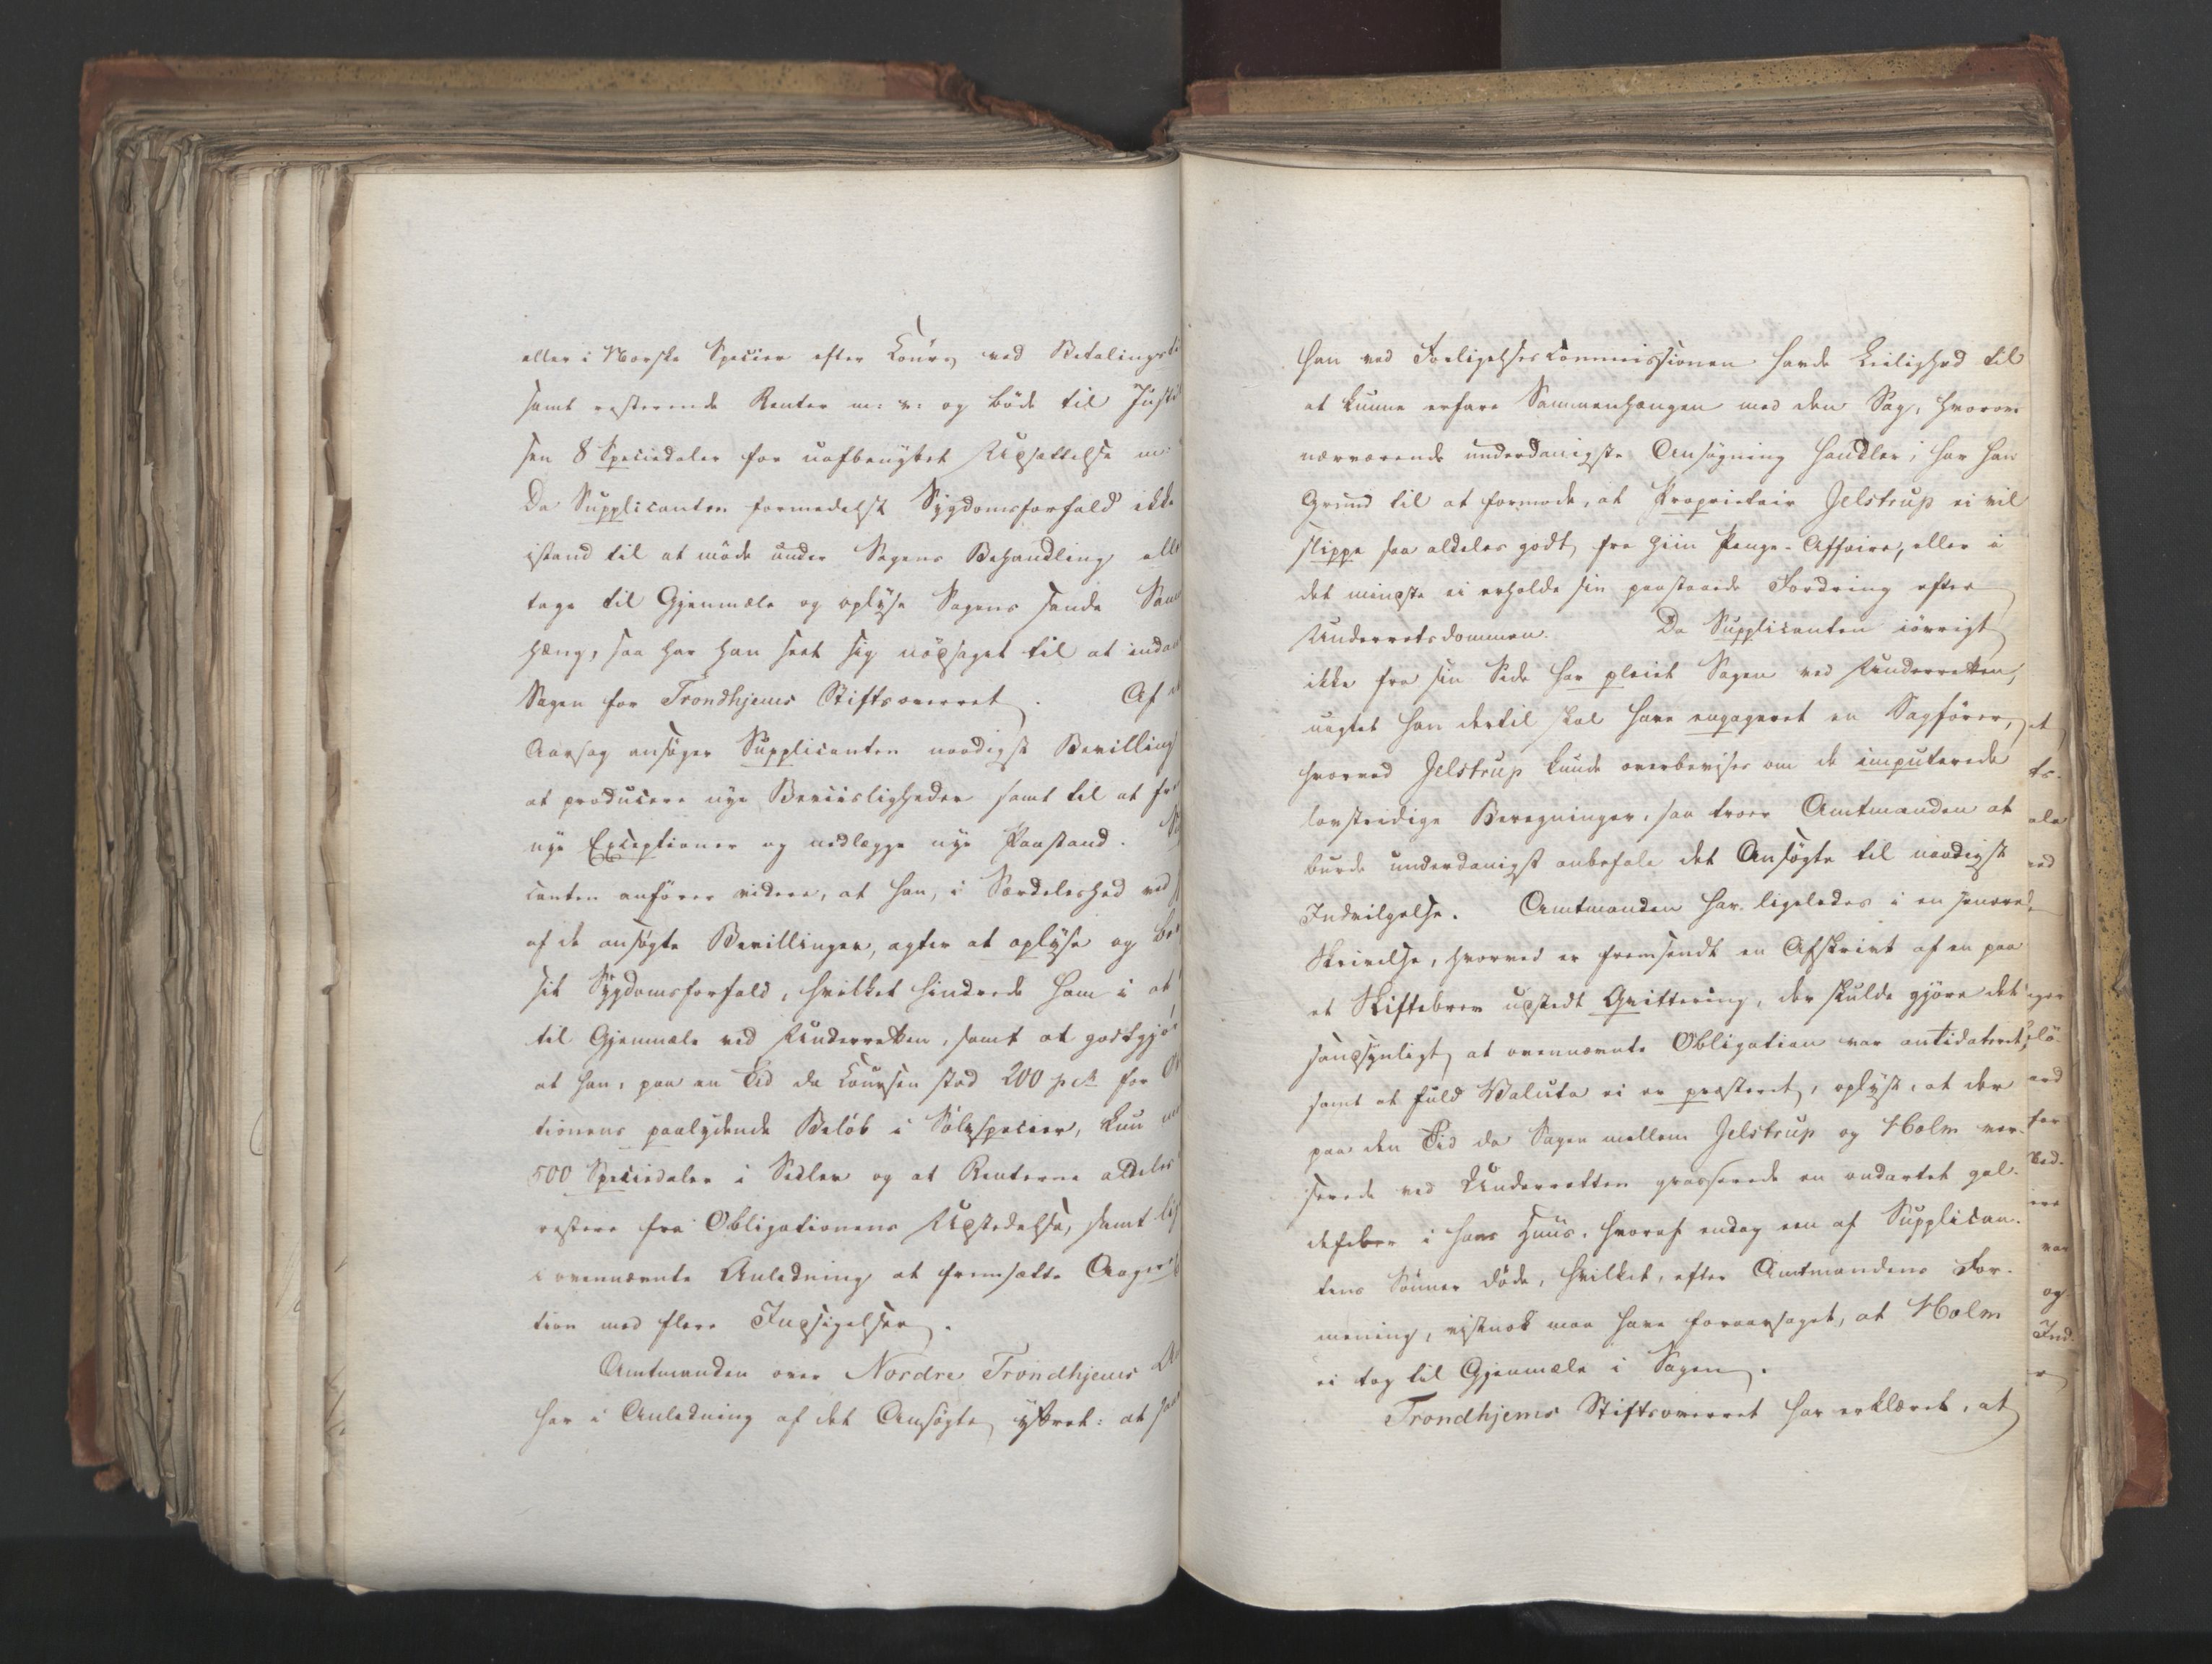 eller i Norske Specier efter Cours ved Betalings
samt resterende Renter m: v: og bøde til Justi
sen 8 Speciedaler for ubeføyet Opsættelse m:
Da Supplicanten formedelst Sygdomsforfald ikke
istand til at møde under Sagens Behandling elle
tage til Gjenmæle og oplyse Sagens sande Sam
hæng, saa har han seet sig nødsaget til at inda
Sagen for Trondhjems Stiftsoverret. Af
Aarsag ansøger Supplicanten naadigst Bevilling
at producere nye Beviisligheder samt til at fre
nye Exceptioner og nedlægge nye Paastand.
canten anfører videre, at han, i Særdeleshed ved
af de ansøgte Bevillinger, agter at oplyse og be
sit Sygdomsforfald, hvilket hindrede ham i at
til Gjenmæle ved Underretten, samt at godtgjør
at han, paa en Tid da Coursen stod 200 pCt for
tionens paalydende Beløb i Sølvspecier, kun
500 Speciedaler i Sedler og at Renterne aldeles
restere fra Obligationens Udstedelse, samt
i ovennævnte Anledning at fremsætte Aager
tion med flere Indsigelser.
Amtmanden over Nordre Trondhjems
har i Anledning af det Ansøgte yttret: at
han ved Forligelsescommissionen havde Leilighed til
at kunne erfare Sammenhængen med den Sag, hvorom
nærværende underdanigste Ansøgning handler; har han
Grund til at formode, at Proprietair Jelstrup ei vil
slippe saa aldeles godt fra hiin Penge-Affaire, eller i
det mindste ei erholde sin paastaaede Fordring efter
Underretsdommen. Da Supplicanten iøvrigt
ikke fra sin Side har pleiet Sagen ved Underretten,
uagtet han dertil skal have engageret en Sagfører,
hvorved Jelstrup kunde overbevises om de imputerede
lovstridige Beregninger, saa troer Amtmanden at
burde underdanigst anbefale det Ansøgte til naadigst
Indvilgelse. Amtmanden har ligeledes i en senere
Skrivelse, hvorved er fremsendt en Afskrivt af en paa
et Skiftebrev udstedt Qvittering, der skulde gjøre det
sandsynligt at ovennævnte Obligation var antidateret,
samt at fuld Valuta ei er præsteret, oplyst, at der
paa den Tid da Sagen mellem Jelstrup og Holm ver-
serede ved Underretten grasserede en ondartet gal-
defeber i hans Huus, hvoraf endog een af Supplican-
tens Sønner døde, hvilket, efter Amtmandens For-
mening, vistnok maa have foraarsaget, at Holm
ei tog til Gjenmæle i Sagen.
Trondhjems Stiftsoverret har erklæret, at